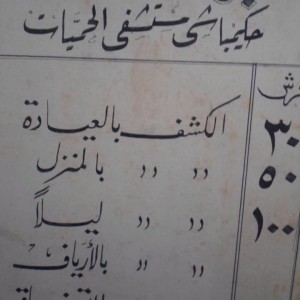 حكيمباشى مستشفى الحميات
قرش
الكشف بالعيادة ٣٠
〃 〃 بالمنزل ٥٠
〃 〃 ليلاً ١٠٠
〃 〃 بالأرياف